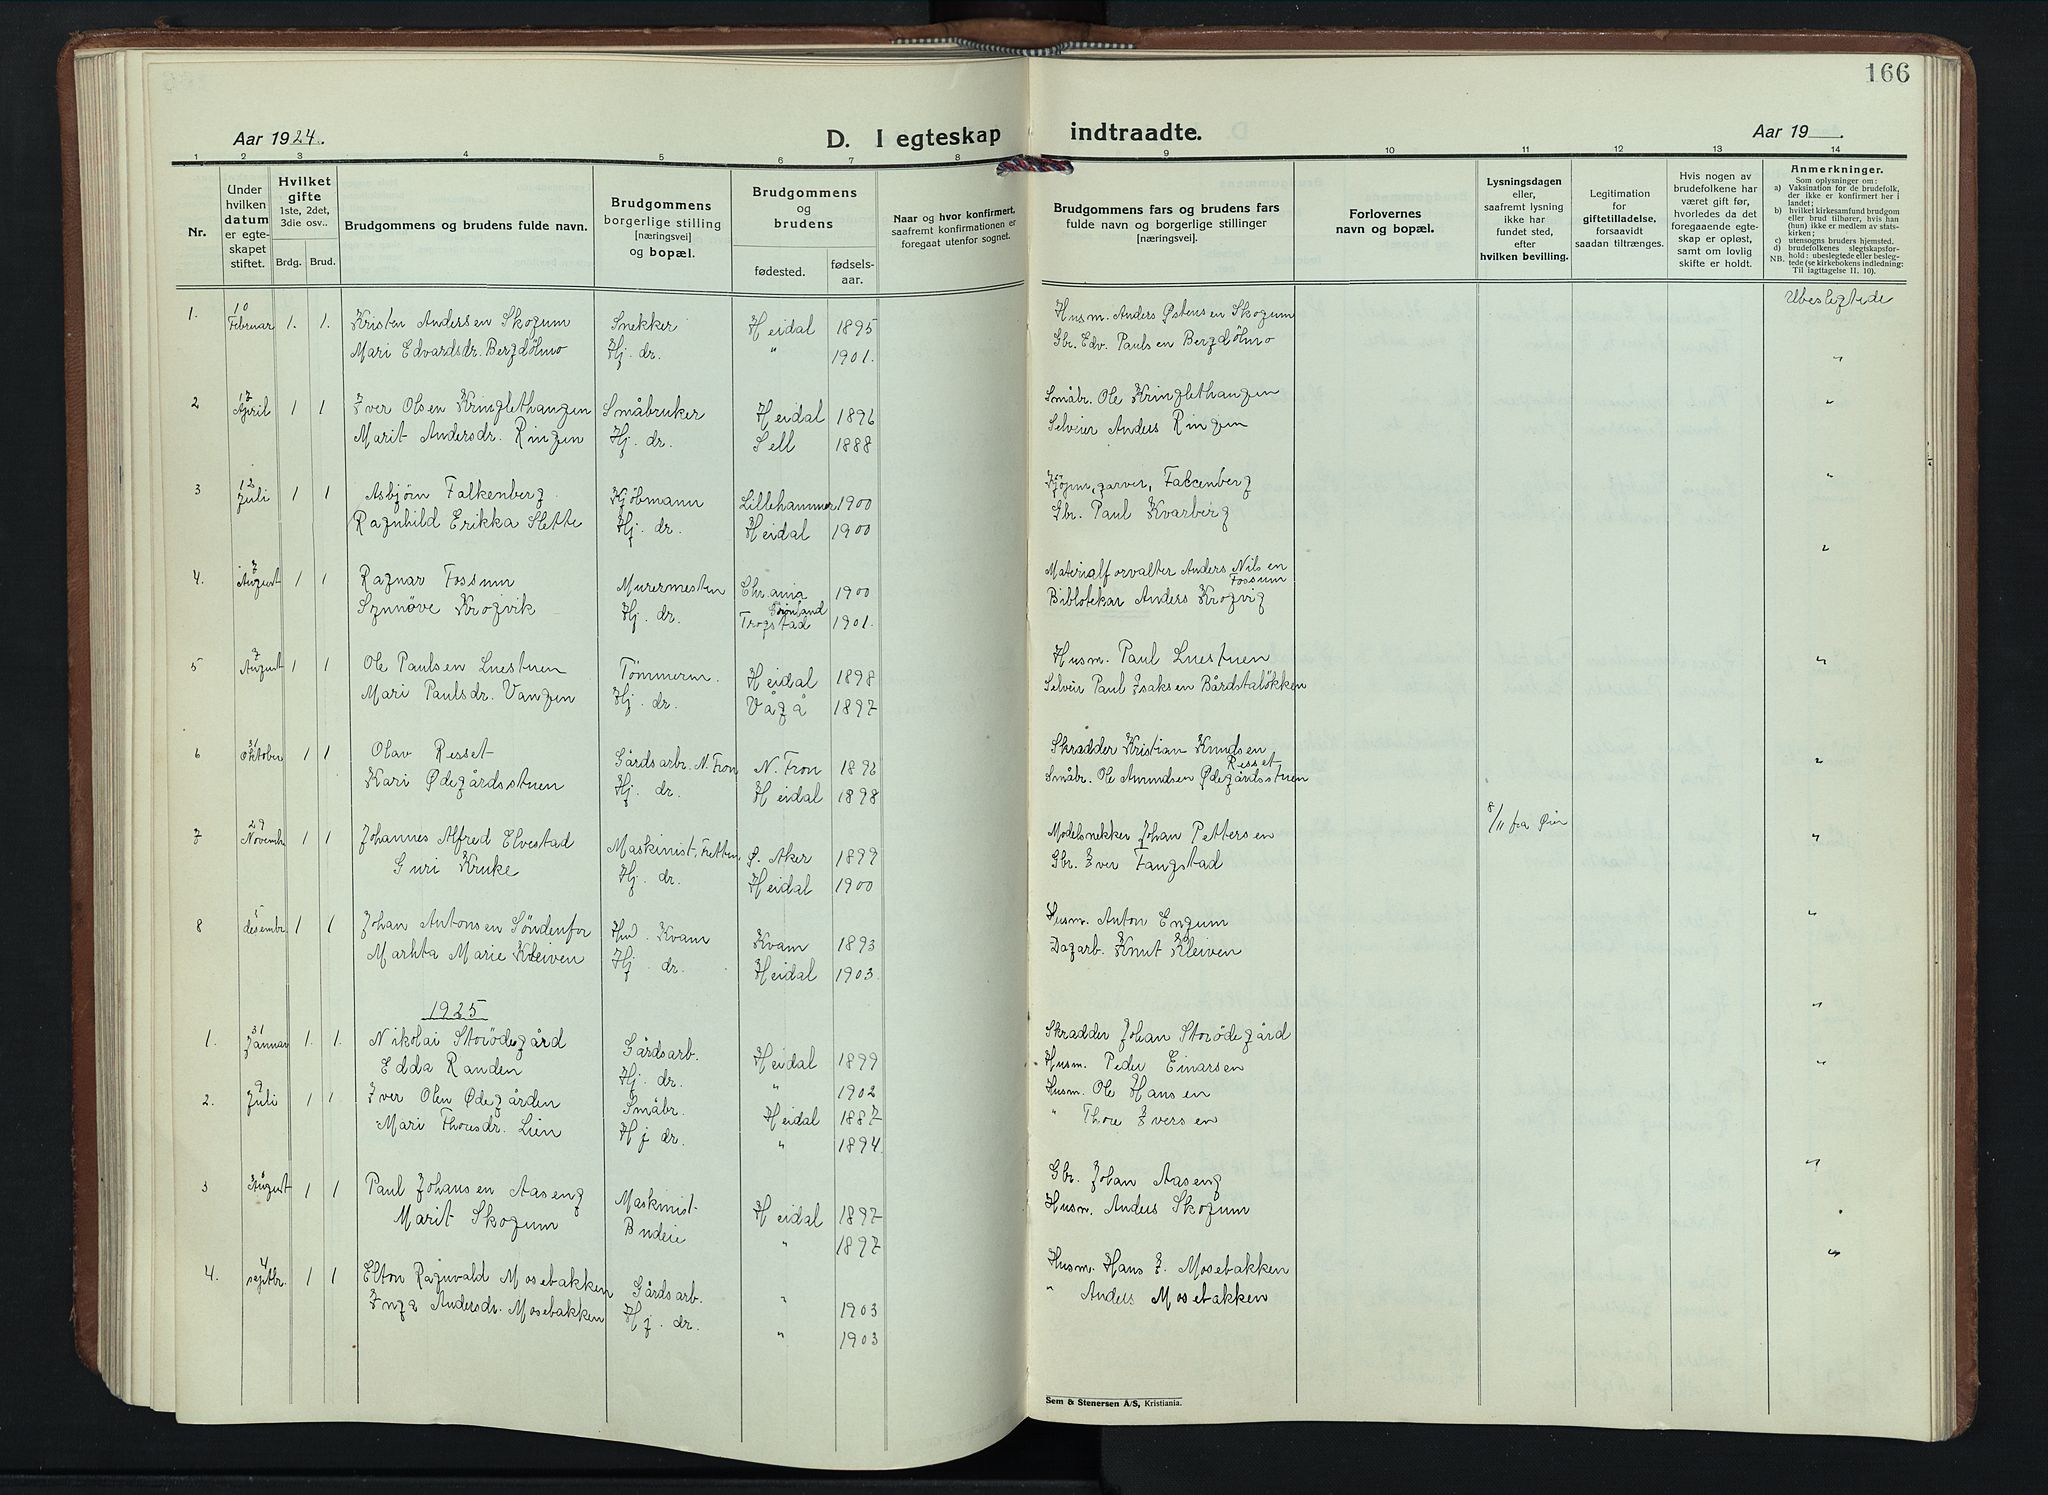 166
Aar 1924.
D. I egteskap indtraadte.
Aar 19
1 2 3 4 5 6 7 8 9 10 11 12 13 14
Nr.
Under hvilken datum er egteskapet stiftet.
Hvilket gifte 1ste, 2det, 3die osv..
Brdg. Brud.
Brudgommens og brudens fulde navn.
Brudgommens borgerlige stilling [næringsvei] og bopæl.
Brudgommens og brudens
fødested. fødselsaar.
Naar og hvor konfirmert, saafremt konfirmationen er foregaat utenfor sognet.
Brudgommens fars og brudens fars fulde navn og borgerlige stillinger [næringsvei].
Forlovernes navn og bopæl.
Lysningsdagen eller, saafremt lysning ikke har fundet sted, efter hvilken bevilling.
Legitimation for giftetilladelse, forsaavidt saadan tiltrænges.
Hvis nogen av brudefolkene har været gift før, hvorledes da det foregaaende egteskap er opløst, samt om lovlig skifte er holdt.
Anmerkninger.
Som oplysninger om:
a) Vaksination for de brudefolk, der ikke er konfirmert her i landet;
b) hvilket kirkesamfund brudgom eller brud tilhører, hvis han (hun) ikke er medlem av statskirken;
c) utensogns bruders hjemsted.
d) brudefolkenes slegtskapsforhold: ubeslegtede eller beslegtede (se kirkebokens indledning:
NB. Til iagttagelse II. 10).
1. 10 Februar 1. 1. Kristen Andersen Skogum Snekker Heidal 1895 Husm. Anders Østensen Skogum Ubeslegtede
Mari Edvardsdr. Bergdølmo Hj. dr. " 1901. Gbr. Edv. Paulsen Bergdølmo "
2 17 April 1 1 Iver Olsen Kringlethaugen Småbruker Heidal 1896 Småbr. Ole Kringlethaugen "
Marit Andersdr. Ringen Hj. dr. Sell 1888 Selveier Anders Ringen
3 12 Juli 1 1 Asbjørn Falkenberg Kjøbmann Lillehammer 1900 garver, Falkenberg "
Ragnhild Erikka Slette Hj. dr. Heidal 1900 Gbr. Paul Kvarberg
4. 7 August 1 1 Ragnar Fossum Murermester Chr.ania 1900 Materialforvalter Anders Nilsen Fossum "
Synnøve Krogvik Hj. dr. Trogstad 1901. Bibliotekar Anders Krogvig
5 7 August 1 1 Ole Paulsen Luestuen Tømmerm. Heidal 1898 Husm. Paul Luestuen "
Mari Paulsdr. Vangen Hj. dr. Vågå 1897 Selveir Paul Isaksen Bårdstaløkken
6 31 Oktober 1 1 Olav Resset Gårdsarbr. N. Fron N. Fron 1896 Skrædder Kristian Knudsen Resset "
Kari Ødegårdsstuen Hj. dr. Heidal 1898 Småbr. Ole Amundsen Ødegårdsstuen
7 29 Novembr 1 1 Johannes Alfred Elvestad Maskinist, Fretten Ø. Aker 1899 Modelsnekker Johan Pettersen 8/11 fra Øier "
Guri Kruke Hj. dr. Heidal 1900 Gbr. Iver Faugstad
8 5 desembr. 1 1 Johan Antonsen Søndenfor Kvam Kvam 1893 Husm. Anton Engum "
Marhta Marie Kleiven Hj. dr. Heidal 1903. Dagarb. Knut Kleiven
1925
1. 31 Januar 1. 1. Nikolai Storødegård Gårdsarb. Heidal 1899 Skrædder Johan Storødegård "
Edda Randen Hj. dr. " 1902 Husm. Peder Einarsen
2. 9 Juli 1 1 Iver Olen Ødegården Småbr. Heidal 1887 Husm. Ole Hansen "
Mari Thoresdr. Lien Hj dr. " 1894. " Thore Iversen
3 August 1 1 Paul Johansen Aaseng Maskinist Heidal 1897 Gbr. Johan Aaseng "
Marit Skogum Budeie " 1897 Husm. Anders Skogum
4. 4 septbr. 1 1 Elton Ragnvald Mosebakken Gårdsarb. " 1903 Husm. Hans J. Mosebakken "
Inga Andersdr. Mosebakken Hj. dr. " 1903 " Anders Mosebakken
Sem & Stenersen A/S, Kristiania.